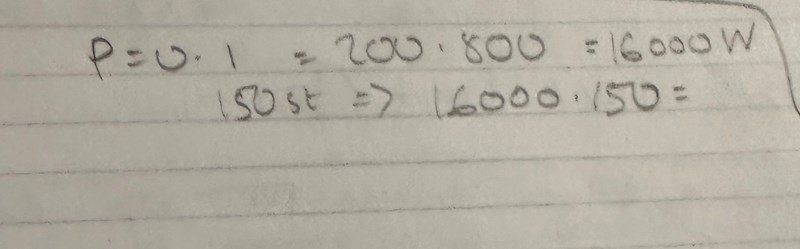 P = U · I = 200 · 800 = 16000 W
150 st => 16000 · 150 =